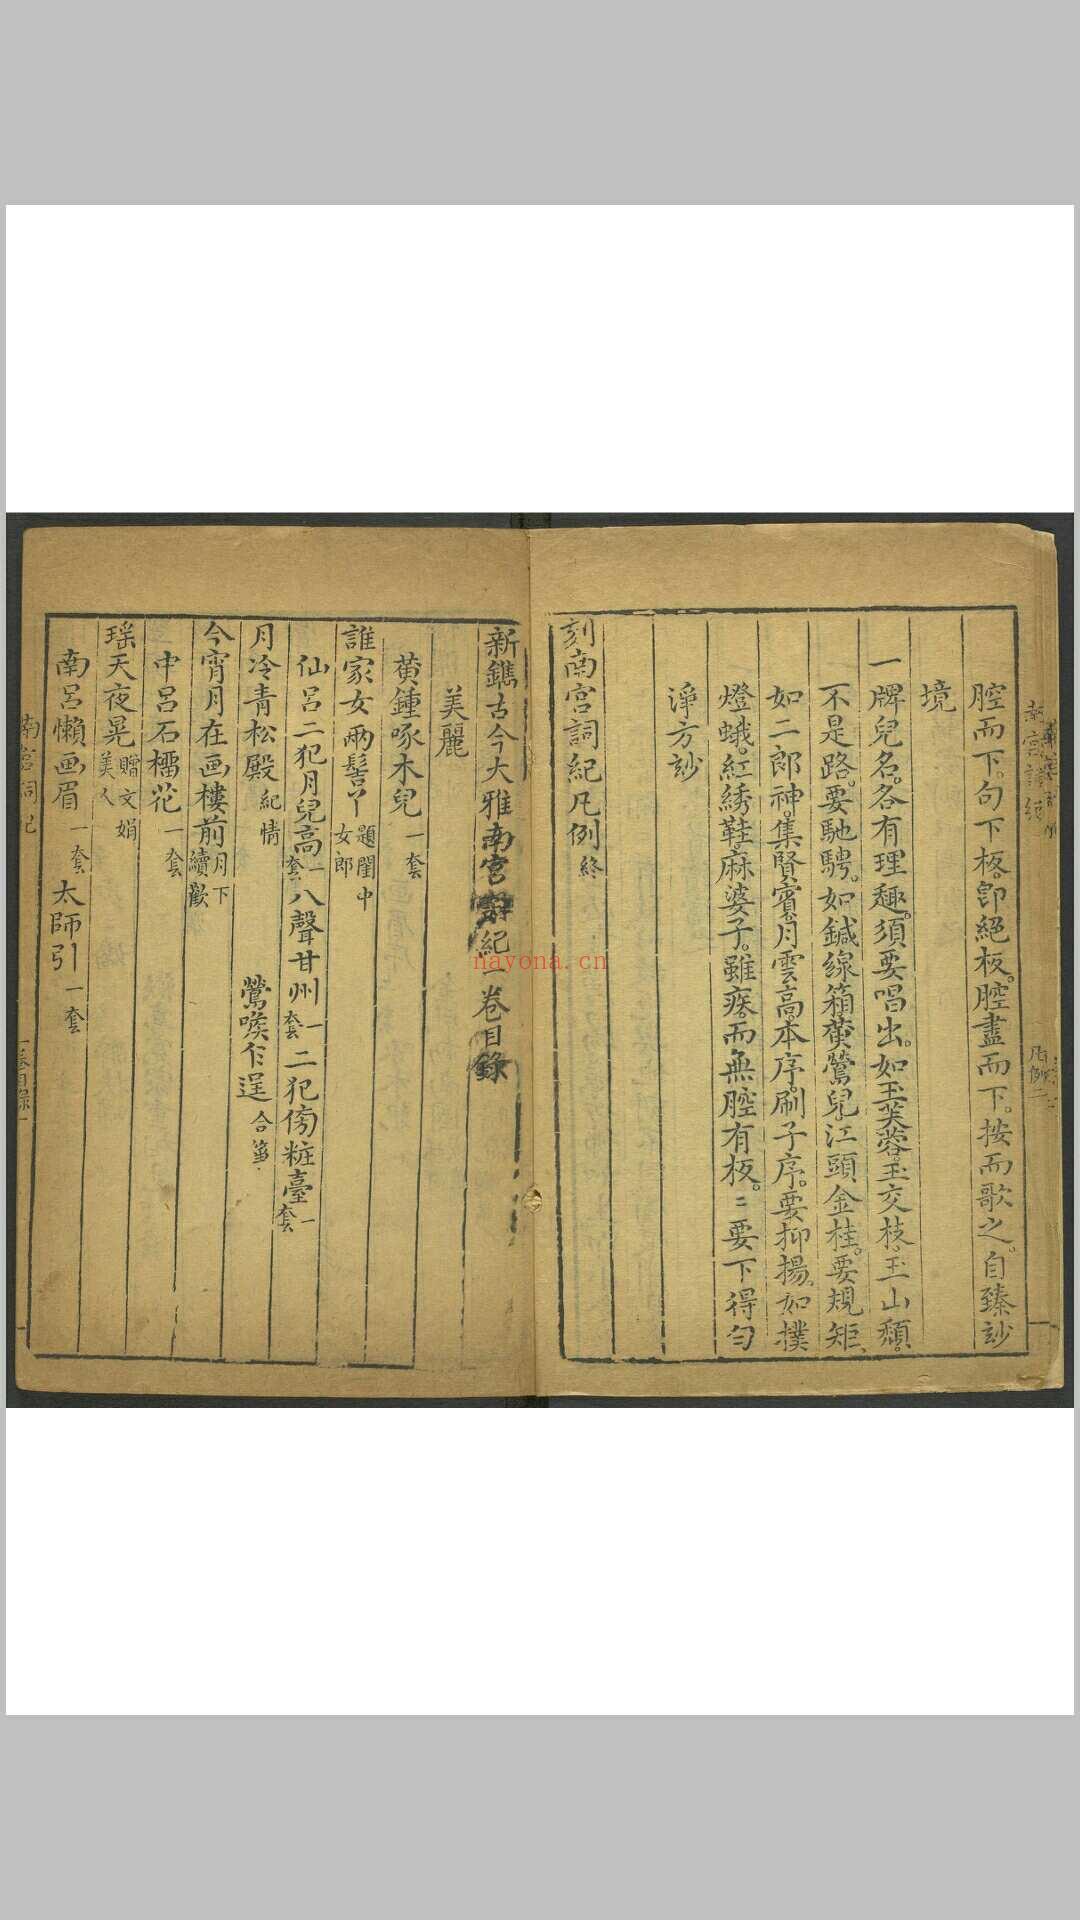 腔而下。句下板。卽絕板。腔盡而下。按而歌之。自臻玅
境
一牌兒名。各有理趣。須要唱出。如玉芙蓉。玉交枝。玉山頹。
不是路。要馳騁。如鍼線箱。黃鶯兒。江頭金桂。要規矩。
如二郎神。集賢賓。月雲高。本序。刷子序。要抑揚。如撲
燈蛾。紅綉鞋。麻婆子。雖疾。而無腔有板。〻要下得勻
淨方玅
刻南宮詞紀凡例終
新鐫古今大雅南宮詞紀一卷目錄
美麗
黄鍾啄木兒一套
誰家女兩髻丫題閨中女郎
仙呂二犯月兒高一套八聲甘州一套二犯傍粧臺一套
月冷青松殿紀情 鶯喉乍逞合筝
今宵月在画樓前月下續歡
中呂石榴花一套
瑶天夜晃贈文娟美人
南呂懶画眉一套太師引一套
南宮詞紀
凡例二
南宮詞紀
一卷目錄一
nayona.cn